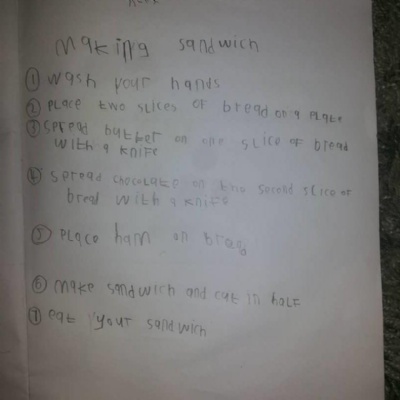 Making sandwich
① wash your hands
② place two slices of bread on a plate
③ spread butter on one slice of bread
with a knife
④ spread chocolate on the second slice of
bread with a knife
⑤ Place ham on bread
⑥ make sandwich and cut in half
⑦ eat your sandwich